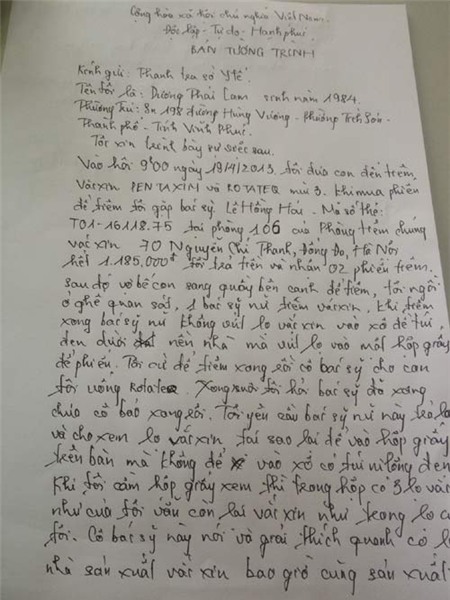 Cộng hòa xã hội chủ nghĩa Việt Nam
Độc lập - Tự do - Hạnh phúc
BẢN TƯỜNG TRÌNH
Kính gửi: Thanh tra sở Y tế.
Tên tôi là: Dương Phái Lam sinh năm 1984.
Phường Trú: Sn 198 đường Hùng Vương - Phường Tích Sơn -
Thành phố - Tỉnh Vĩnh Phúc.
Tôi xin trình bày sự việc sau.
Vào hồi 9h00 ngày 19/4/2013. tôi đưa con đến tiêm
Vácxin PENTAXIM và ROTATEQ mũi 3. Khi mua phiếu
để tiêm tôi gặp bác sỹ Lê Hồng Hải - Mã số thẻ:
T01-16118.75 tại phòng 106 của Phòng tiêm chủng
vác xin 70 Nguyễn Chí Thanh, Đống Đa, Hà Nội
hết 1.185.000đ tôi trả tiền và nhận 02 phiếu tiêm.
sau đó vợ bế con sang quầy bên cạnh để tiêm, tôi ngồi
ở ghế quan sát, 1 bác sỹ nữ tiêm vácxin, khi tiêm
xong bác sỹ nữ không vứt lọ vác xin vào xô để túi
đen dưới nền nhà mà vứt lọ vào một hộp giấy
để phiếu. Tôi cứ để tiêm xong rồi có bác sỹ cho con
tôi uống Rotateq. Xong xuôi tôi hỏi bác sỹ đã xong
chưa cô bảo xong rồi. Tôi yêu cầu bác sỹ nữ này trả lọ
và cho xem lọ vácxin tại sao lại để vào hộp giấy
trên bàn mà không để vào xô có túi nilông đen
Khi tôi cầm hộp giấy xem thì trong hộp có 3 lọ vác
như của tôi vẫn còn lại vác xin như trong lọ c
tôi. Cô bác sỹ này nói và giải thích quanh co l
nhà sản xuất vác xin bao giờ cũng sản xuất